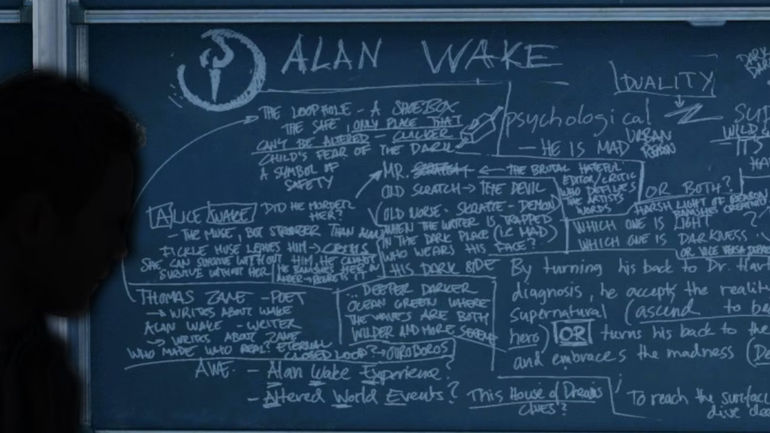 ALAN WAKE
DUALITY
THE LOOPHOLE - A SHOEBOX
THE SAFE, ONLY PLACE THAT
CAN'T BE ALTERED - CLICKER
CHILD'S FEAR OF THE DARK
A SYMBOL OF
SAFETY
psychological
- HE IS MAD
URBAN
MR. SCRATCH ← THE BRUTAL HATEFUL
EDITOR/CRITIC
WHO DEFILES
THE ARTIST'S
WORDS
OLD SCRATCH → THE DEVIL
OLD NORSE - SKRATTE - DEMON
WHEN THE WRITER IS TRAPPED
IN THE DARK PLACE (I.E. MAD)
WHO WEARS HIS FACE?
HIS DARK SIDE
OR BOTH?
HARSH LIGHT OF REASON
BANISHES CREATIVITY
WHICH ONE IS LIGHT?
WHICH ONE IS DARKNESS
OR VICE VERSA
ALICE WAKE
DID HE MURDER
HER?
- THE MUSE, BUT STRONGER THAN ALAN
FICKLE MUSE LEAVES HIM → CRISIS
SHE CAN SURVIVE WITHOUT HIM, HE CANNOT
SURVIVE WITHOUT HER
HE BANISHES HER IN
ANGER → REGRETS IT
THOMAS ZANE - POET
→ WRITES ABOUT WAKE
ALAN WAKE - WRITER
→ WRITES ABOUT ZANE
WHO MADE WHO REAL? ETERNAL
CLOSED LOOP? → OUROBOROS
... DEEPER DARKER
OCEAN GREEN WHERE
THE WAVES ARE BOTH
WILDER AND MORE SERENE
By turning his back to Dr. Hart
diagnosis, he accepts the reality
supernatural (ascend to be
hero) OR turns his back to the
and embraces the madness (De
AWE - Alan Wake Experience?
- Altered World Events?
This House of Dreams
CLUES?
To reach the surfac
dive dee